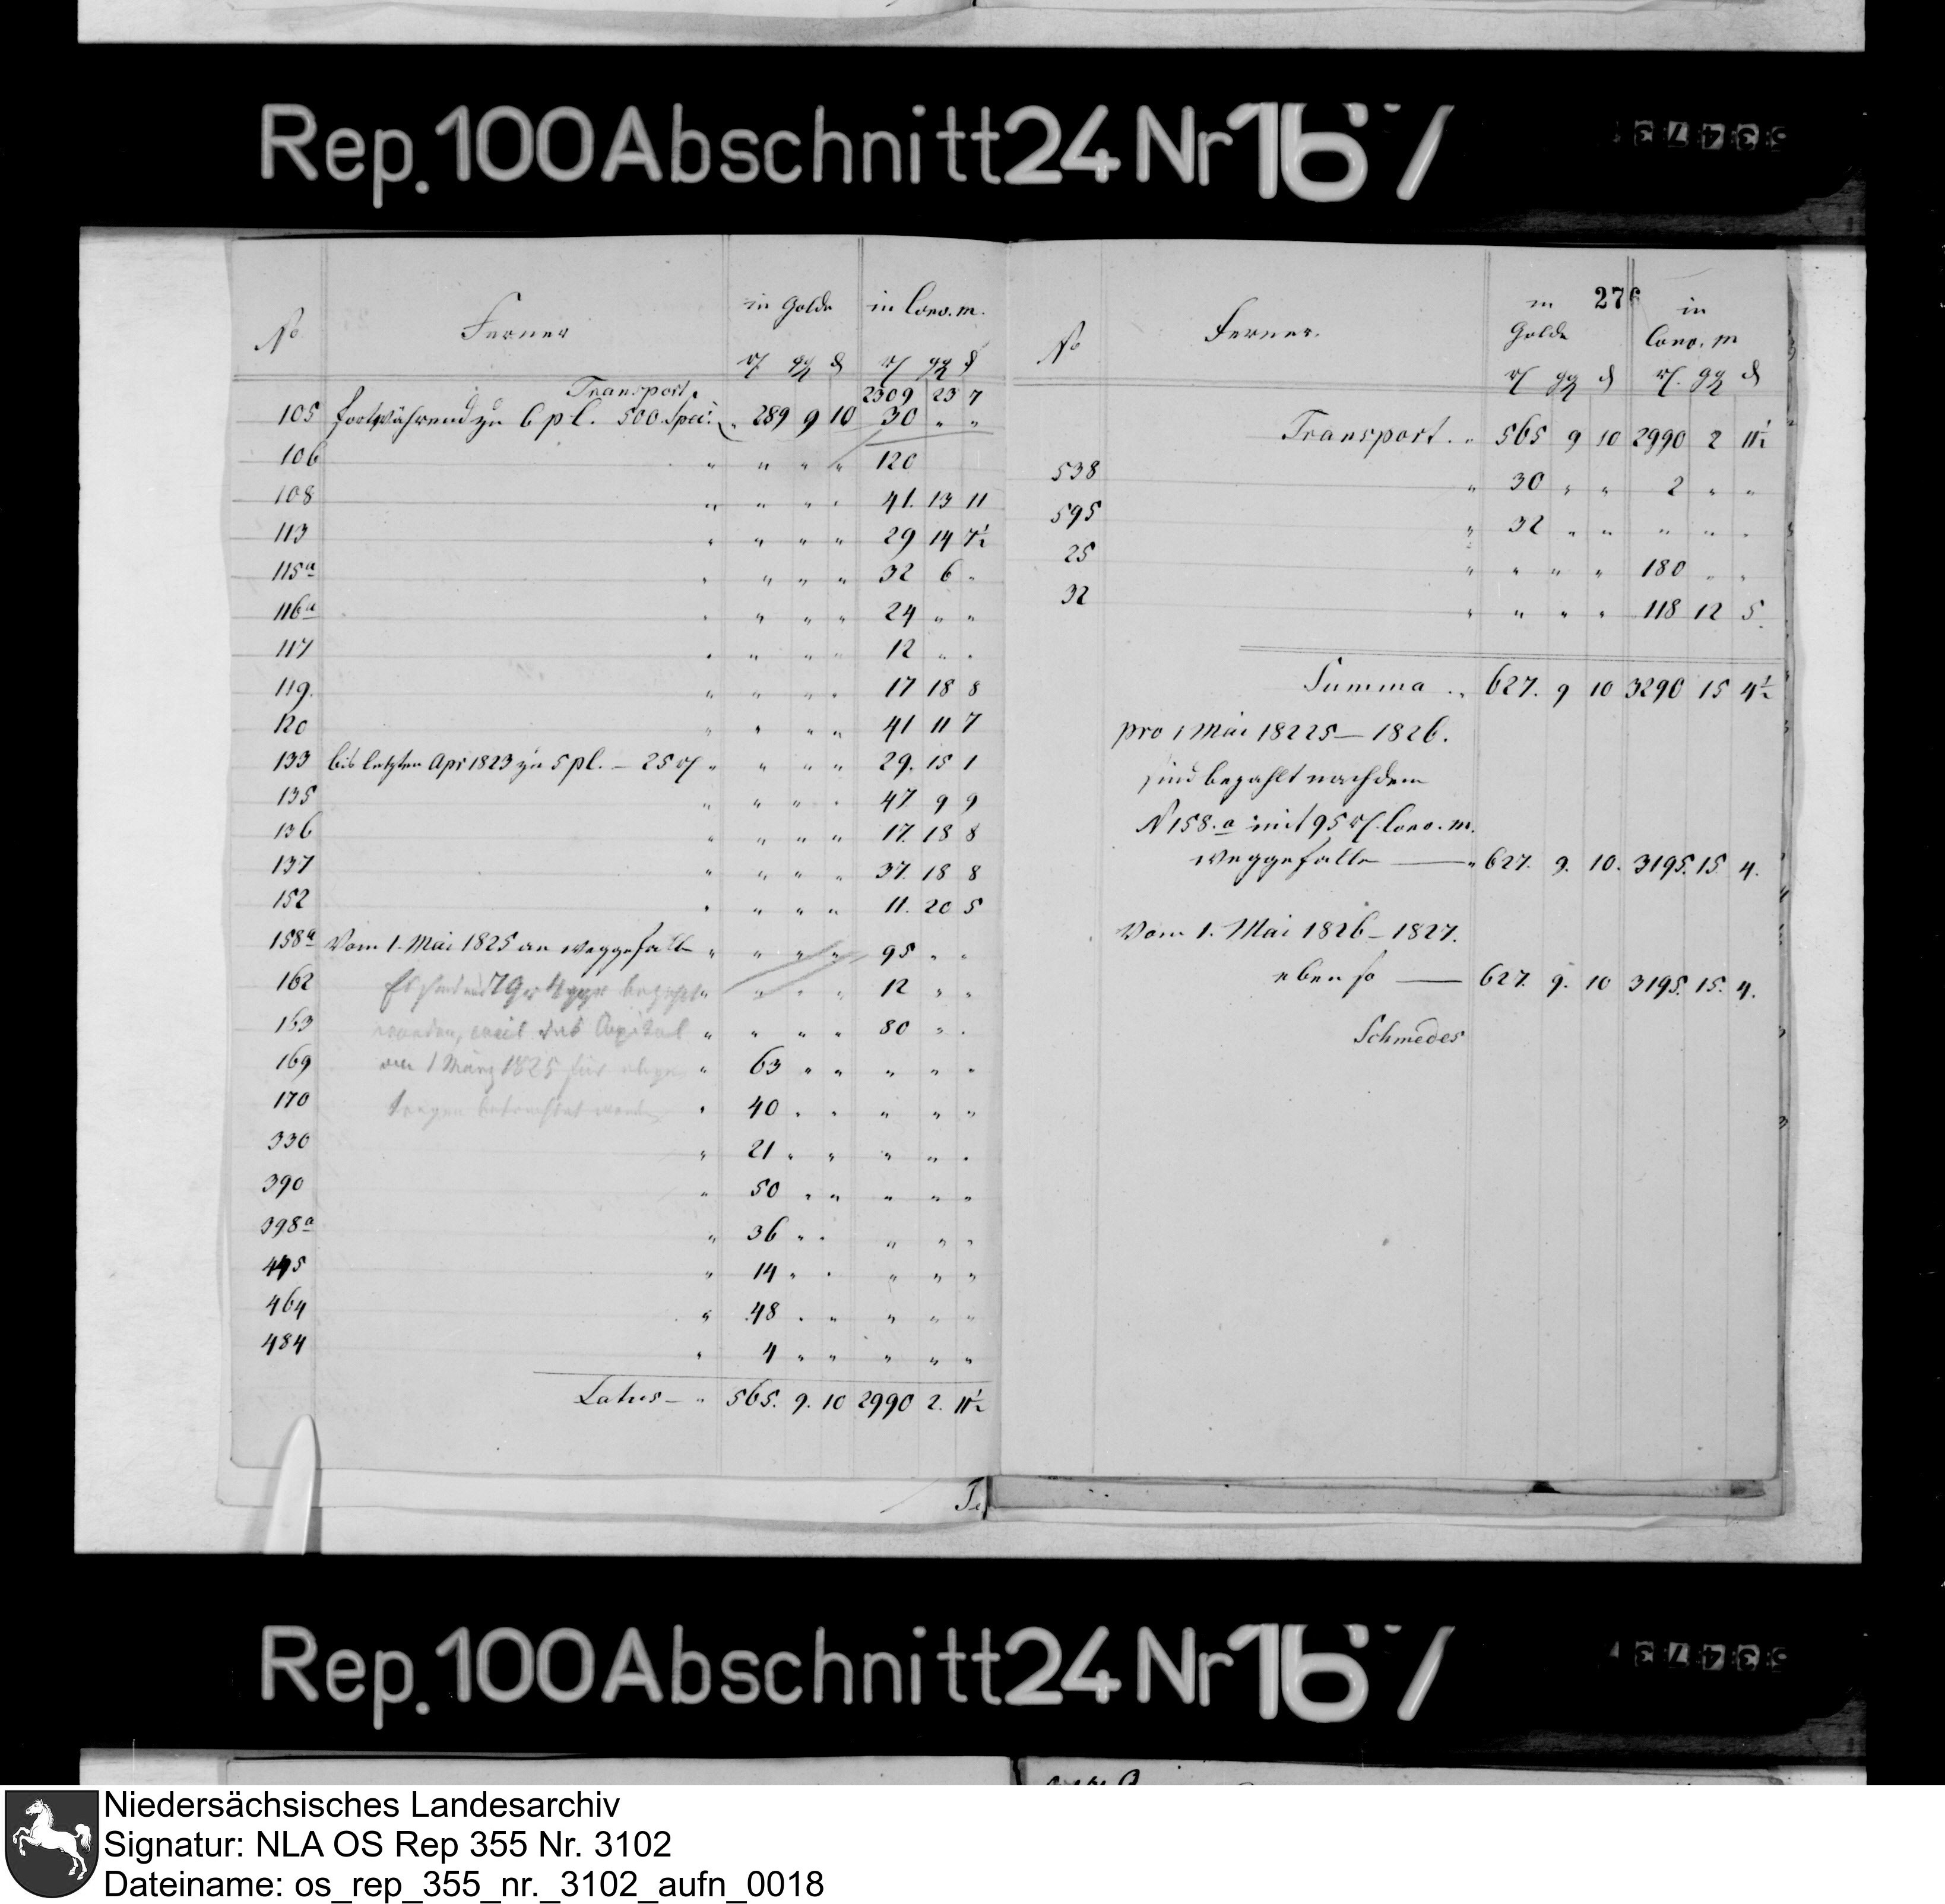 Rep. 100 Abschnitt 24 Nr 167
No Ferner in Golde in Conv. m.
rℓ ggr ₰ rℓ ggr ₰
Transport 2309 23 7
105 fortwährend zu 6 p C. 500 Speci: 289 9 10 30 " "
106 " " " " 120
108 " " " " 41. 13 11
113 " " " " 29 14 7½
115a " " " " 32 6 "
116a " " " " 24 " "
117 " " " " 12 " "
119. " " " " 17 18 8
120 " " " " 41 11 7
133 bis letzten Apr 1823 zu 5 pC. – 25 rℓ " " " " 29. 15 1
135 " " " " 47 9 9
136 " " " " 17. 18 8
137 " " " " 37. 18 8
152 " " " " 11. 20 5
158a Vom 1. Mai 1825 an weggefalle " " " " 95 " "
162 Es sind 79 4 ggr bezahlt " " " " 12 " "
163 worden, weil das Capital " " " " 80 " "
169 am 1 März 1825 für abge " 63 " " " " "
170 tragen betrachtet worden " 40 " " " " "
330 " 21 " " " " "
390 " 50 " " " " "
398a " 36 " " " " "
445 " 14 " " " " "
464 " 48 " " " " "
484 " 4 " " " " "
Latus – " 565. 9. 10 2990 2. 11½
276
No Ferner. in Golde in Conv. m
rℓ ggr ₰ rℓ. ggr ₰
Transport. " 565 9 10 2990 2 11½
538 " 30 " " 2 " "
595 " 32 " " " " "
25 " " " " 180 " "
32 " " " " 118 12 5.
Summa " 627. 9 10 3290 15 4½
pro 1 Mai 18225 – 1826.
sind bezahlt nachdem
N 158.a mit 95 rℓ. Conv. m.
weggefalle — " 627. 9. 10. 3195. 15. 4.
Vom 1. Mai 1826 – 1827.
ebenso — 627. 9. 10 3195. 15. 4.
Schmedes
Rep. 100 Abschnitt 24 Nr 167
Niedersächsisches Landesarchiv
Signatur: NLA OS Rep 355 Nr. 3102
Dateiname: os_rep_355_nr._3102_aufn_0018